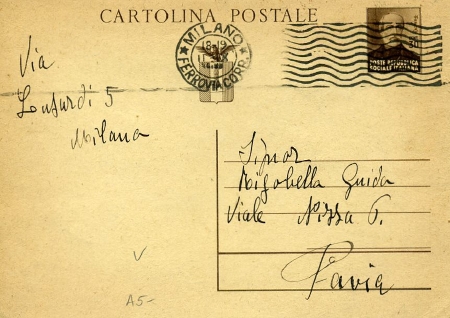 CARTOLINA POSTALE
MILANO
18-19
FERROVIA CORR.
POSTE REPUBBLICA
SOCIALE ITALIANA
Via
Lonsardi 5
Milano
Signor
Migobella Guida
Viale Nizza 6.
Pavia
V
A5-